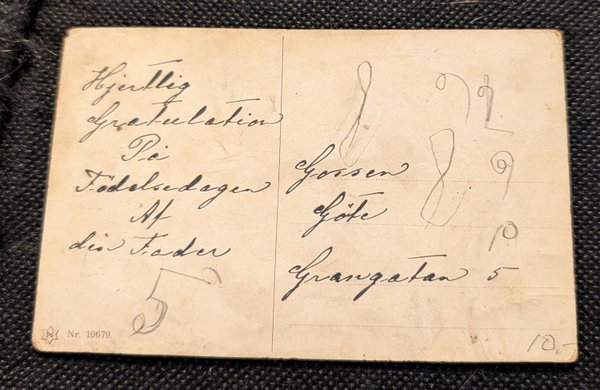 Hjertlig
Gratulation
På
Födelsedagen
Af
din Fader
5
Nr. 10679.
8 92
8 9
10
Gossen
Göte
Grangatan 5
10.-